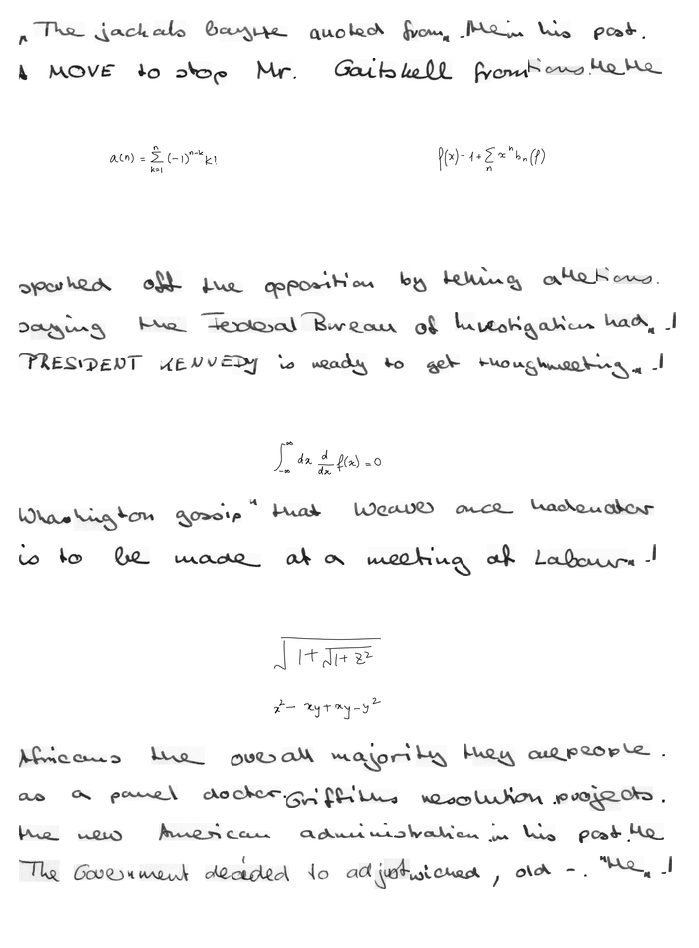 " The jackals bayHe quoted from " . He in his post .
A MOVE to stop Mr. Gaitskell from tions . He He
a(n) = \sum_{k=1}^{n} (-1)^{n-k} k!
f(x) - 1 + \sum_{n} x^n b_n(f)
sparked off the opposition by telling allegations .
saying the Federal Bureau of Investigation had " . !
PRESIDENT KENNEDY is ready to get tough meeting " . !
\int_{-\infty}^{\infty} dx \frac{d}{dx} f(x) = 0
Washington gossip " that Weaver once had
is to be made at a meeting of Labour " - !
\sqrt{1 + \sqrt{1 + z^2}}
x^2 - xy + xy - y^2
Africans the overall majority they are people .
as a panel doctor . Griffiths resolution . projects .
the new American administration . in his post . He
The Government decided to adjust wicked , old - . " He " . !